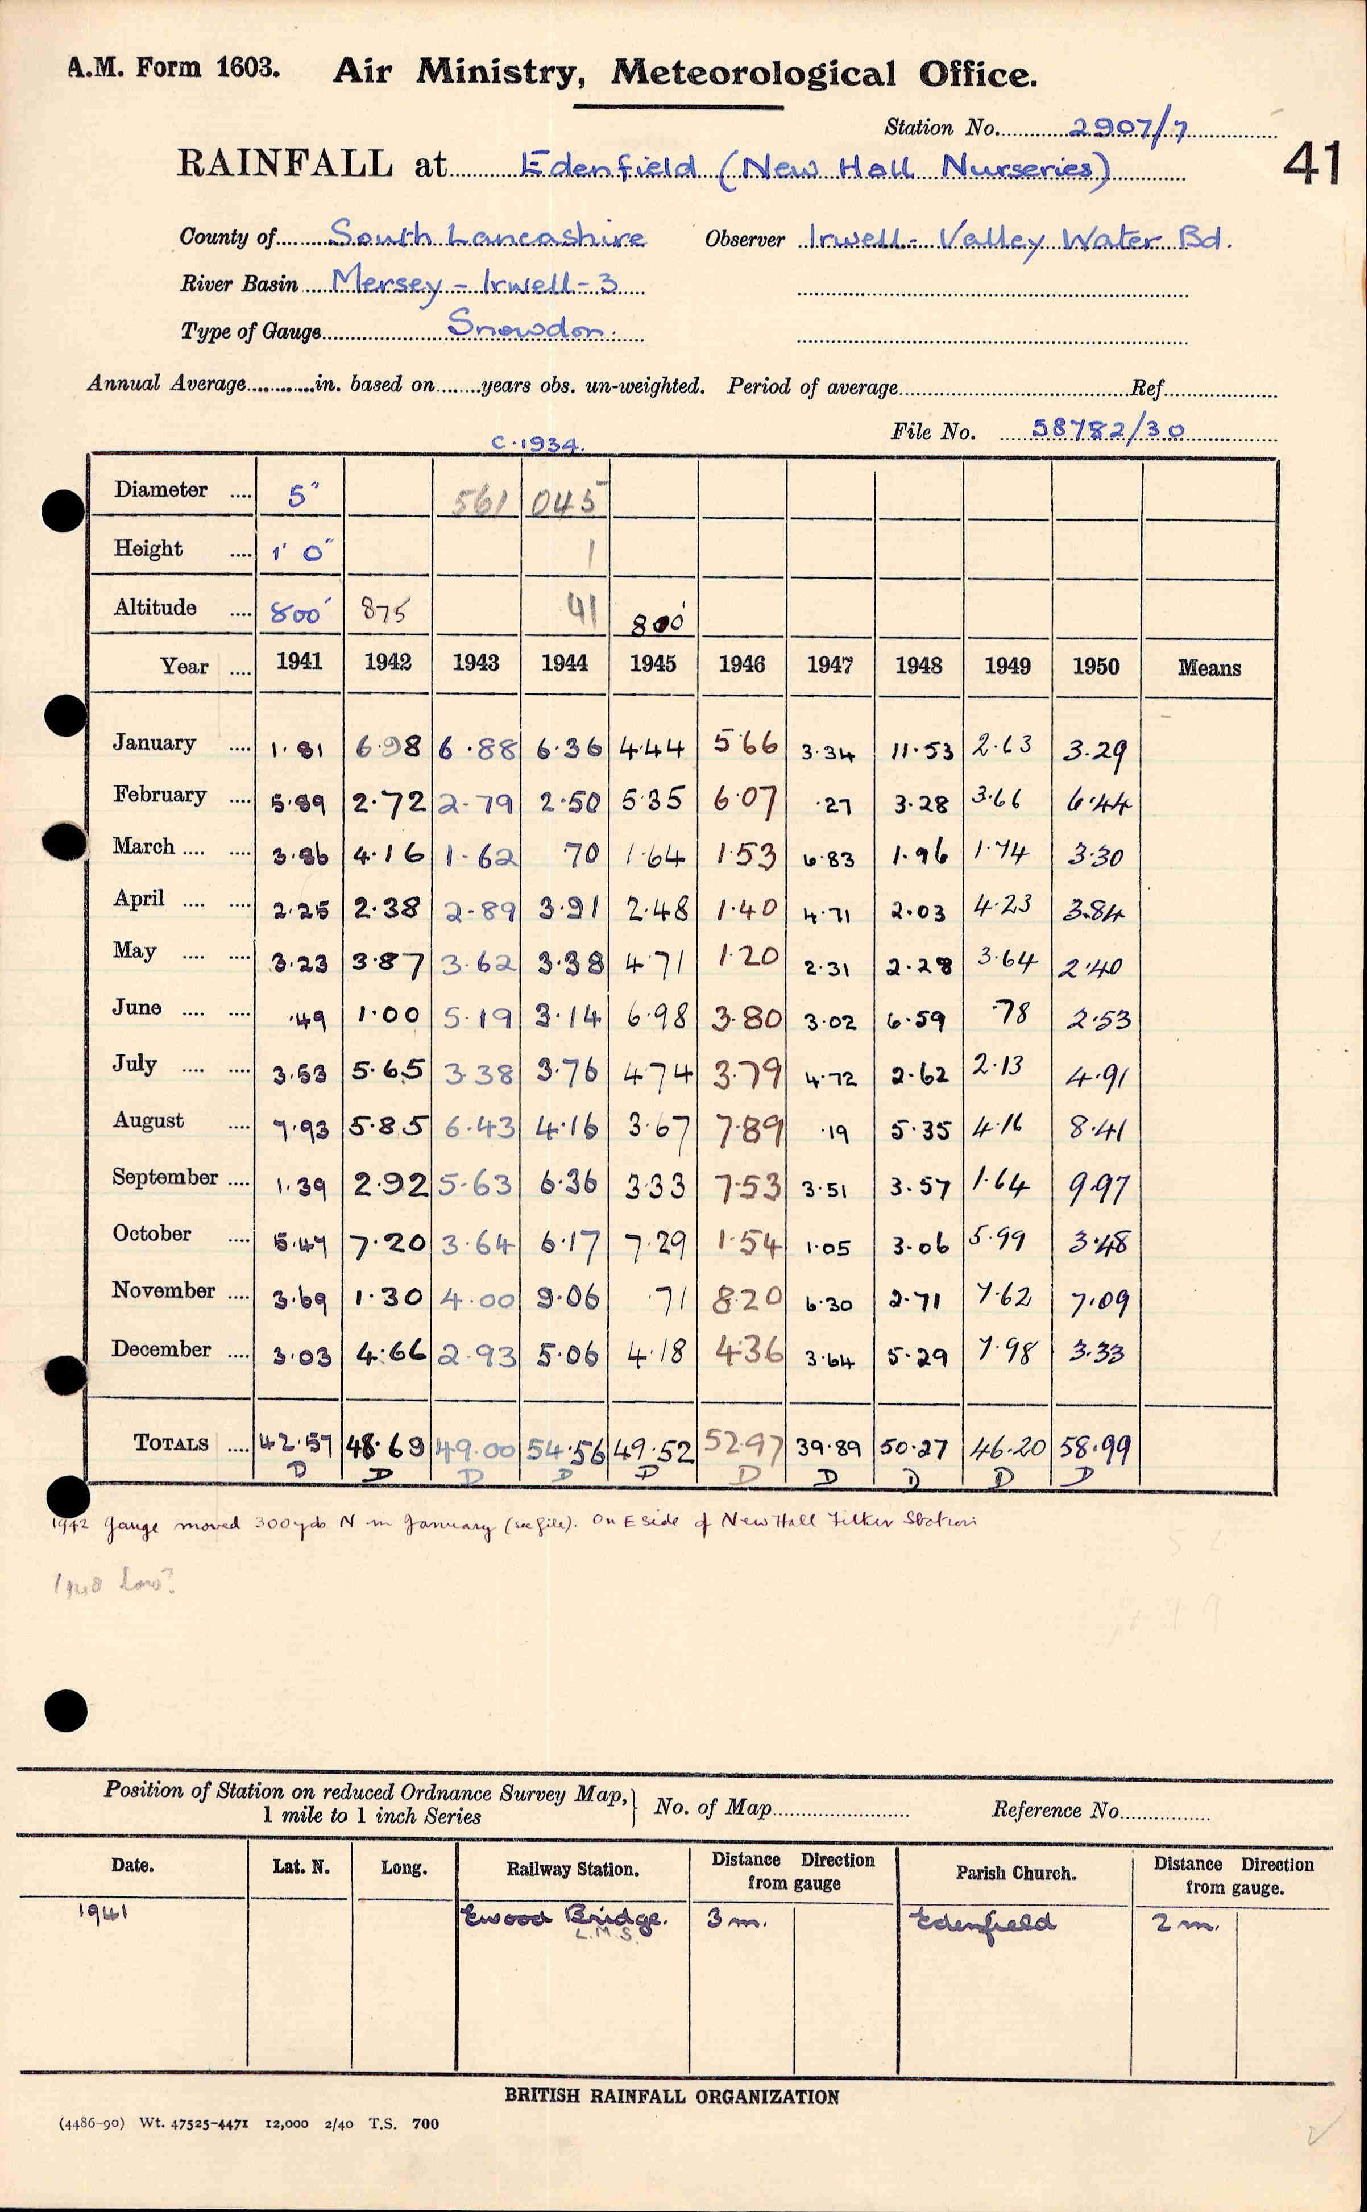 A.M. Form 1603. Air Ministry, Meteorological Office.
Station No. 2907/7
41
RAINFALL at Edenfield (New Hall Nurseries)
County of South Lancashire Observer Irwell-Valley Water Bd.
River Basin Mersey - Irwell - 3
Type of Gauge Snowdon.
Annual Average in. based on years obs. un-weighted. Period of average Ref
File No. 58782/30
C.1934.
Diameter 5" 561 045
Height 1' 0" 1
Altitude 800' 875 41 800'
Year 1941 1942 1943 1944 1945 1946 1947 1948 1949 1950 Means
January 1.81 6.98 6.88 6.36 4.44 5.66 3.34 11.53 2.63 3.29
February 5.89 2.72 2.79 2.50 5.35 6.07 .27 3.28 3.66 6.44
March 3.86 4.16 1.62 70 1.64 1.53 6.83 1.96 1.74 3.30
April 2.25 2.38 2.89 3.91 2.48 1.40 4.71 2.03 4.23 3.84
May 3.23 3.87 3.62 3.38 4.71 1.20 2.31 2.28 3.64 2.40
June .49 1.00 5.19 3.14 6.98 3.80 3.02 6.59 .78 2.53
July 3.53 5.65 3.38 3.76 4.74 3.79 4.72 2.62 2.13 4.91
August 7.93 5.85 6.43 4.16 3.67 7.89 .19 5.35 4.16 8.41
September 1.39 2.92 5.63 6.36 3.33 7.53 3.51 3.57 1.64 9.97
October 5.47 7.20 3.64 6.17 7.29 1.54 1.05 3.06 5.99 3.48
November 3.69 1.30 4.00 9.06 .71 8.20 6.30 2.71 7.62 7.09
December 3.03 4.66 2.93 5.06 4.18 4.36 3.64 5.29 7.98 3.33
TOTALS 42.57 48.69 49.00 54.56 49.52 52.97 39.89 50.27 46.20 58.99
D D D D D D D D D D
1942 Gauge moved 300yds N in January (see file). On E side of New Hall Filter Station
1948 low?
Position of Station on reduced Ordnance Survey Map, 1 mile to 1 inch Series } No. of Map Reference No.
Date. Lat. N. Long. Railway Station. Distance Direction from gauge Parish Church. Distance Direction from gauge.
1941 Ewood Bridge. 3 m. Edenfield 2 m.
L.M.S.
BRITISH RAINFALL ORGANIZATION
(4486-90) Wt. 47525-4471 12,000 2/40 T.S. 700